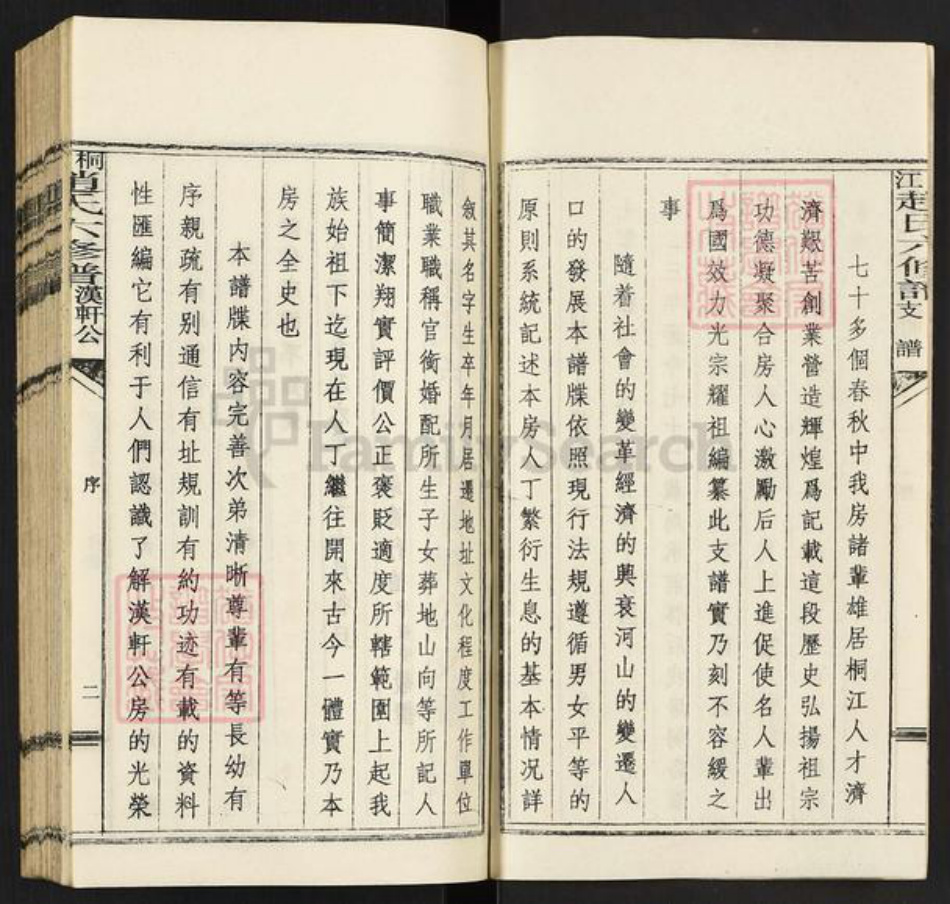 七十多個春秋中我房諸輩雄居桐江人才濟
濟艱苦創業營造輝煌爲記載這段歷史弘揚祖宗
功德凝聚合房人心激勵后人上進促使名人輩出
爲國效力光宗耀祖編纂此支譜實乃刻不容緩之
事
隨着社會的變革經濟的興衰河山的變遷人
口的發展本譜牒依照現行法規遵循男女平等的
原則系統記述本房人丁繁衍生息的基本情况詳
敘其名字生卒年月居遷地址文化程度工作單位
職業職稱官銜婚配所生子女葬地山向等所記人
事簡潔翔實評價公正褒貶適度所轄範圍上起我
族始祖下迄現在人丁繼往開來古今一體實乃本
房之全史也
本譜牒内容完善次弟清晰尊輩有等長幼有
序親疏有别通信有址規訓有約功迹有載的資料
性匯編它有利于人們認識了解漢軒公房的光榮
江趙氏六修譜支 譜
桐趙氏六修譜漢軒公
序
二
FamilySearch